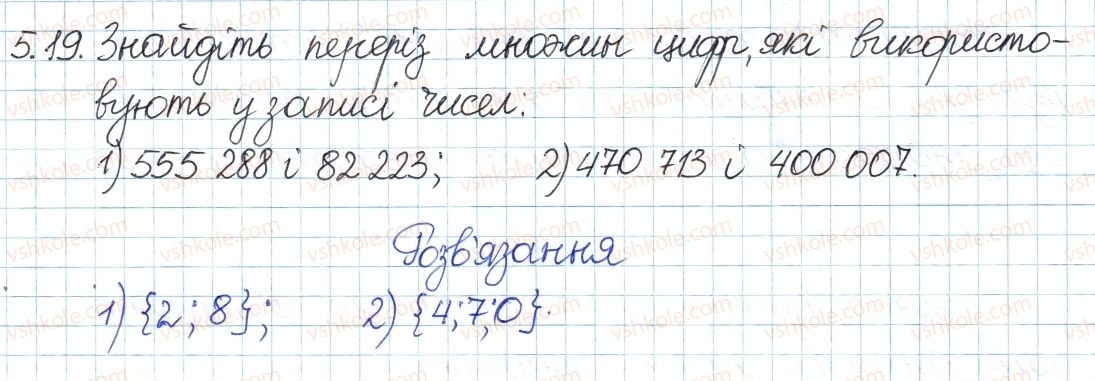 5.19. Знайдіть переріз множин цифр, які використо-
вують у записі чисел:
1) 555 288 і 82 223; 2) 470 713 і 400 007.
Розв'язання
1) {2; 8}; 2) {4; 7; 0}.